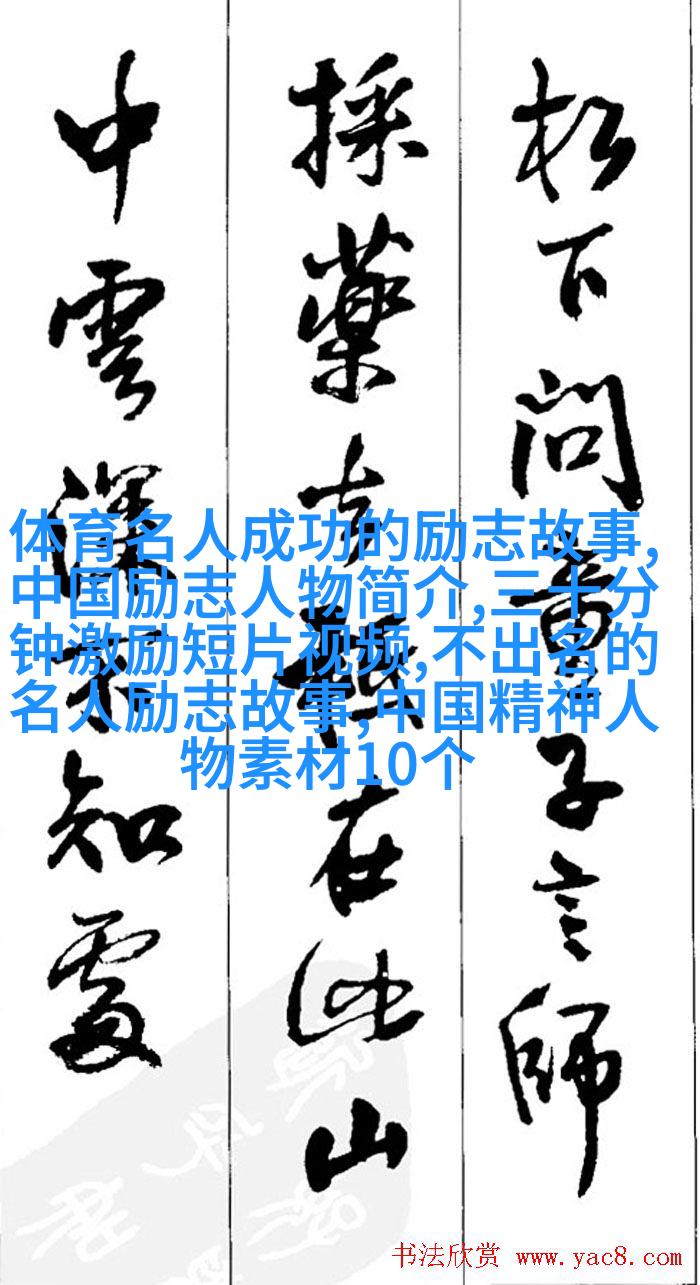 松下问童子言师
採藥去祗在此山
中雲深不知處
体育名人成功的励志故事,
中国励志人物简介,三十分
钟激励短片视频,不出名的
名人励志故事,中国精神人
物素材10个
书法欣赏 www.yac8.com